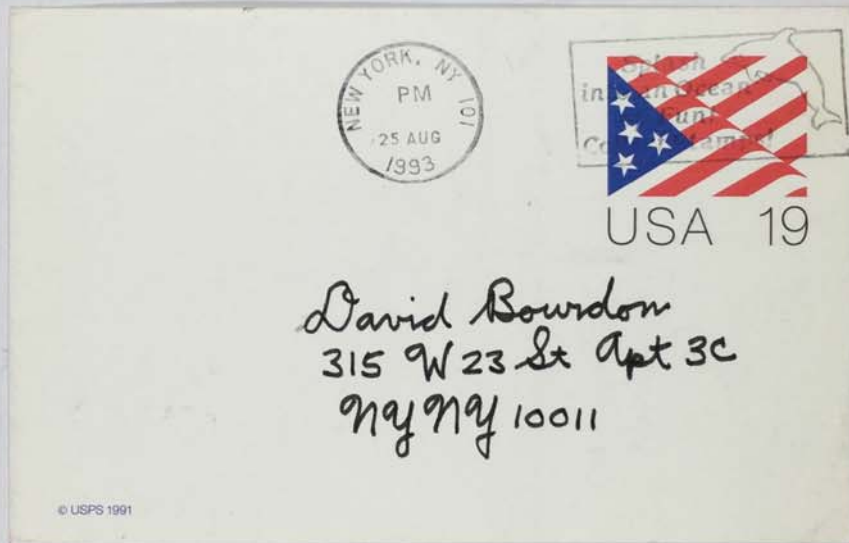 NEW YORK, NY 101
PM
25 AUG
1993
Splash
in an Ocean
Fun!
USA 19
David Bourdon
315 W 23 St Apt 3C
NY NY 10011
© USPS 1991